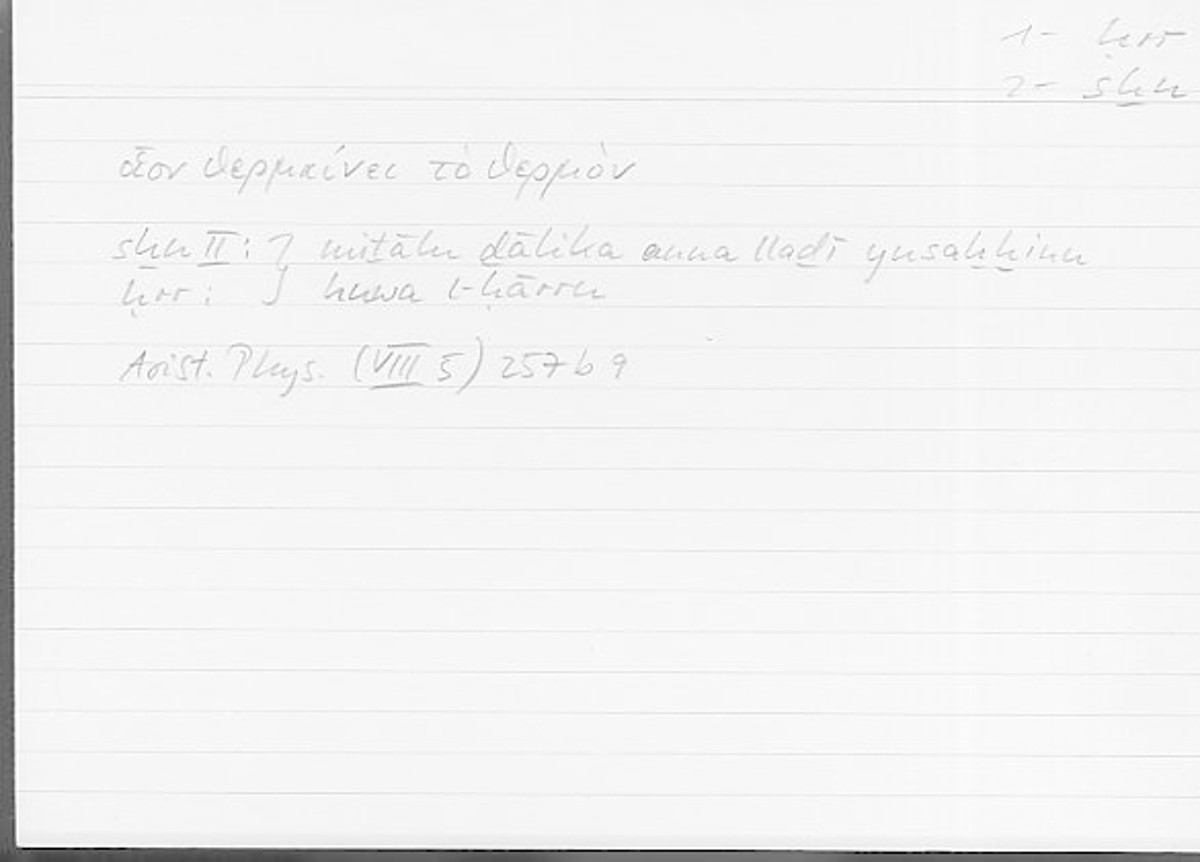 1- ḥrr
2- sḫn
οἷον θερμαίνει τὸ θερμόν
sḫn II: } miṯālu ḏālika anna lladī yusaḫḫinu
ḥrr: } huwa l-ḥārru
Arist. Phys. (VIII 5) 257 b 9